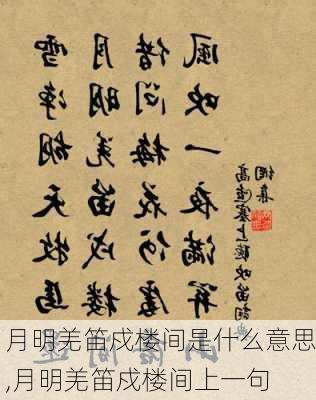 雪净胡天牧馬
月明羌笛戍樓
借问梅花何處
風吹一夜滿關
高適塞上聽吹笛
月明羌笛戍楼间是什么意思
,月明羌笛戍楼间上一句